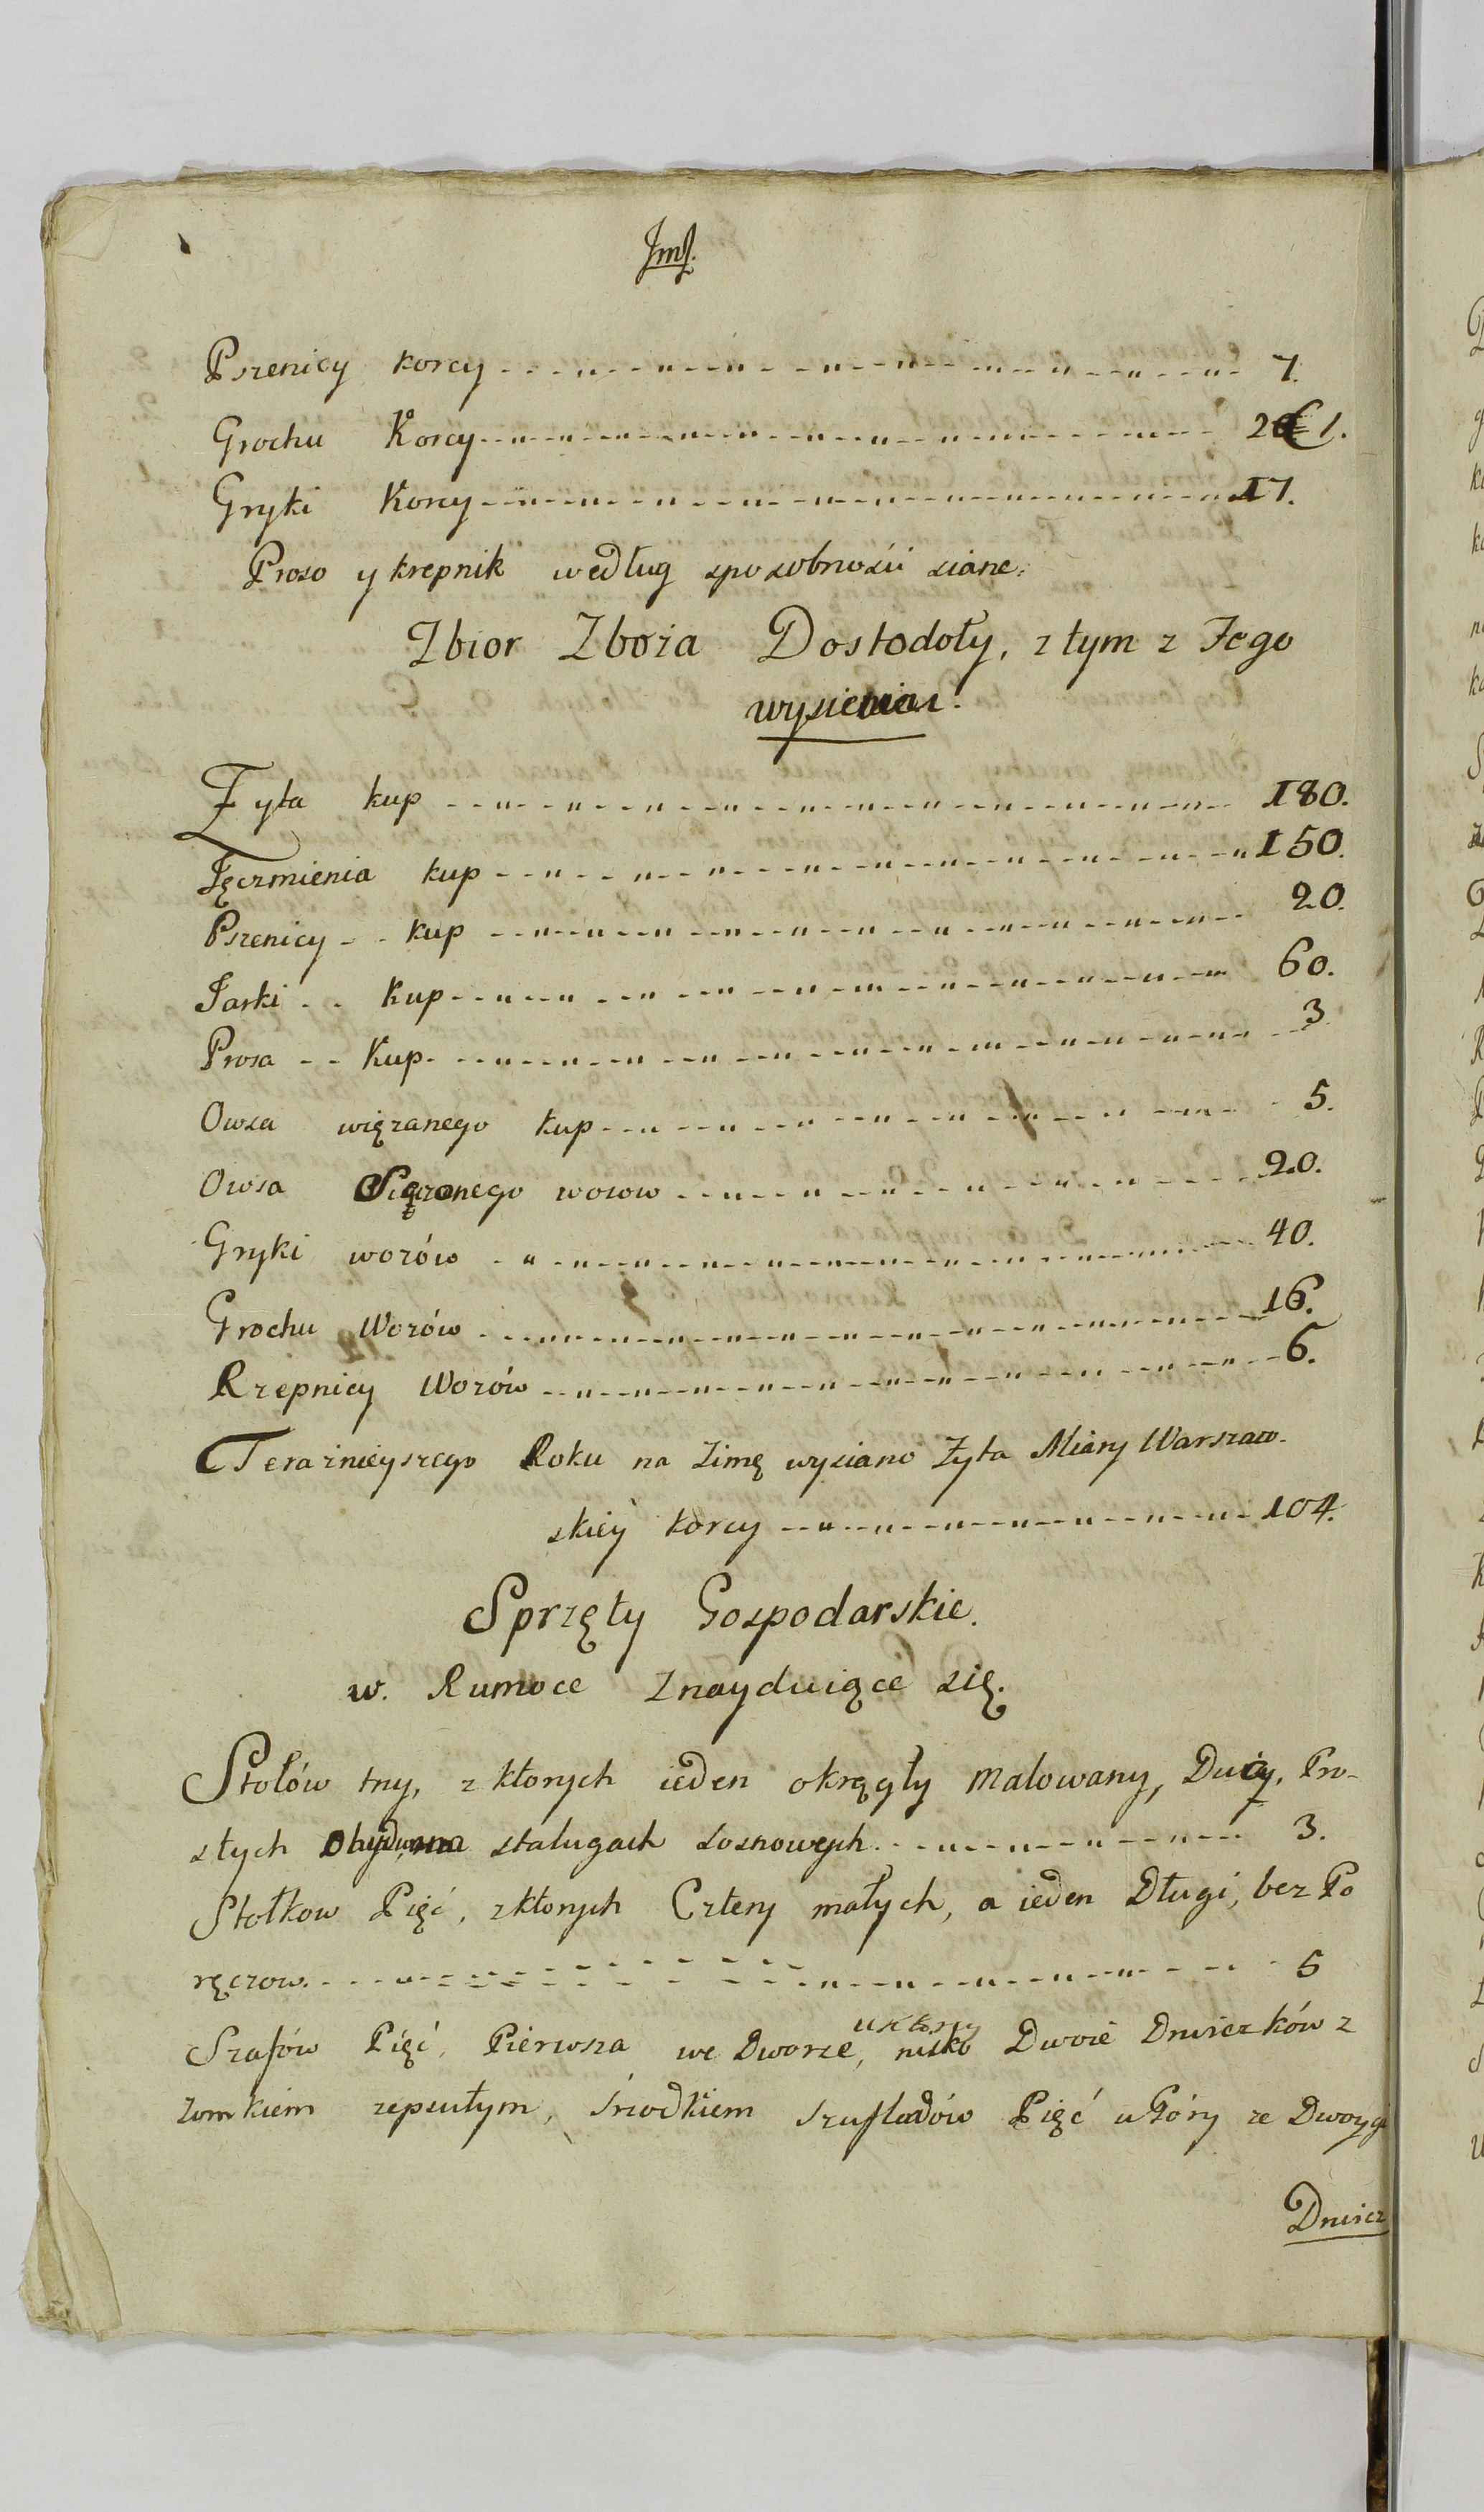 Pszenicy korcy 7.
Grochu Korcy 1.
Gryki Korcy 17.
Proso y krepnik według sposobności siane.
Zbior Zboża Dostodoły, z tym z Jego
wysiewu.
Żyta kup 180.
Jęczmienia kup 150.
Pszenicy kup 20.
Jarki Kup 60.
Prosa Kup 3
Owsa więzanego kup 5.
Owsa wozow 20.
Gryki wozów 40.
Grochu Wozów 16.
Rzepnicy Wozów 6.
Teraznieyszego Roku na Zimę wysiano Żyta Miary Warszaw-
skiéy korcy 104.
Sprzęty Gospodarskie.
w. Rumoce Znayduiące się.
Stołów try, z ktorych ieden okrągły malowany, Pro-
stych stalugach sosnowych 3.
Stołkow Pięć, z ktorych Cztery małych, a ieden Długi, bez Po
ręczow. 5
Szafów Pięć, Pierwsza we Dworze, u ktorey nisko Dwoie Drwiczków z
zomkiem zepsutym, śrzodkiem szufladów Pięć u Góry ze Dwoyg
Drwicz